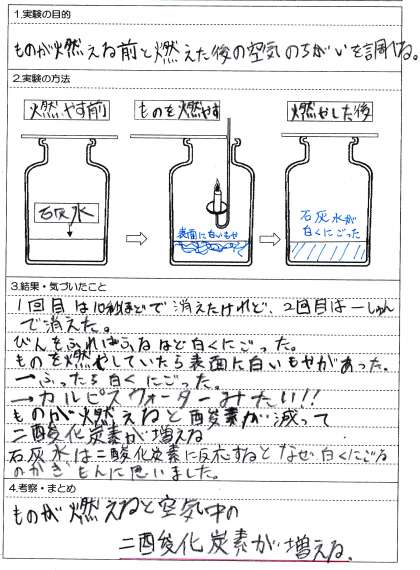 1.実験の目的
ものが燃える前と燃えた後の空気のちがいを調べる。
2.実験の方法
燃やす前
ものを燃やす
燃やした後
石灰水
表面に白いもや
石灰水が
白くにごった
3.結果・気づいたこと
1回目は10秒ほどで消えたけれど、2回目は一しゅん
で消えた。
びんをふればふるほど白くにごった。
ものを燃やしていたら表面に白いもやがあった。
→ふったら白くにごった。
→カルピスウォーターみたい!!
ものが燃えると酸素が減って
二酸化炭素が増える
石灰水は二酸化炭素に反応するとなぜ白くにごる
のかぎもんに思いました。
4.考察・まとめ
ものが燃えると空気中の
二酸化炭素が増える。